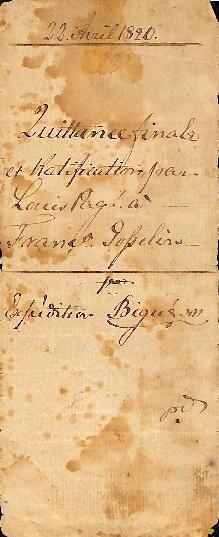 22. Avril 1820.
Quittance finale
et Ratification par
Louis Pagé à
Franc.s Gosselin
Expédition